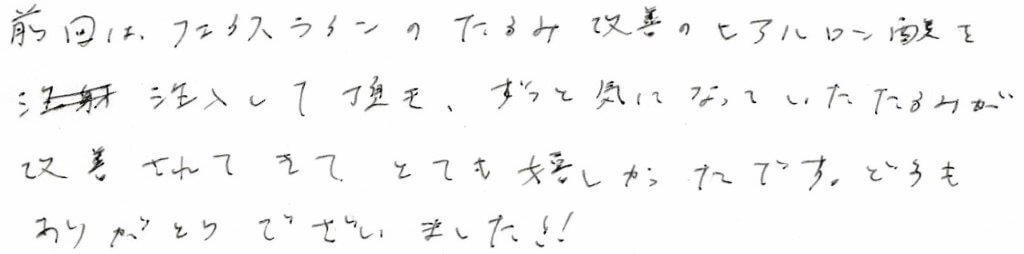 前回は、フェイスラインのたるみ改善のヒアルロン酸を
注射 注入して頂き、ずっと気になっていたたるみが
改善されてきて、とても嬉しかったです。どうも
ありがとうございました!!